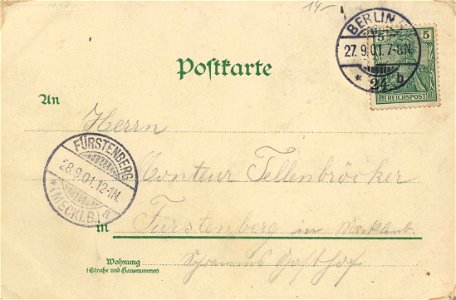 14-
BERLIN
27.9.01.7-8N.
* 24 b
5 5
REICHSPOST
Postkarte
An
Herrn
Monteur Tellenbröcker
FÜRSTENBERG
28.9.01.12-1N.
* (MECKLB.) a
in Fürstenberg in Mecklenb.
Wohnung
(Straße und Hausnummer)